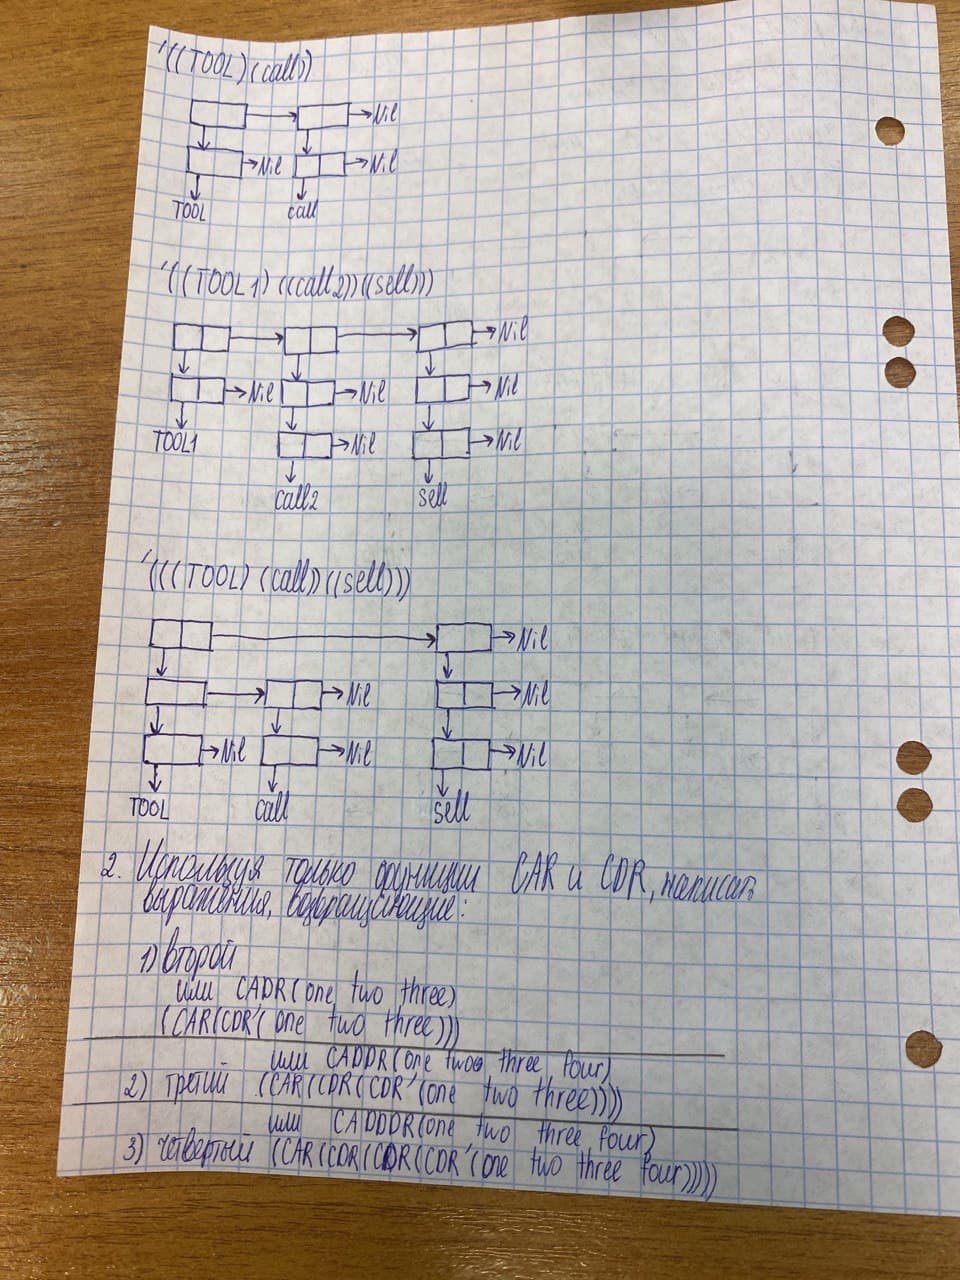 '((TOOL)(call))
Nil
Nil Nil
TOOL call
'((TOOL1)((call2))((sell)))
Nil
Nil Nil Nil
TOOL1 Nil Nil
call2 sell
'(((TOOL)(call))((sell)))
Nil
Nil Nil
Nil Nil Nil
TOOL call sell
2. Используя только функции CAR и CDR, написать
выражения, возвращающие:
1) второй
или CADR(one two three)
(CAR(CDR'(one two three)))
или CADDR(one two three four)
2) третий (CAR(CDR(CDR'(one two three))))
или CADDDR(one two three four)
3) четвертый (CAR(CDR(CDR(CDR'(one two three four)))))